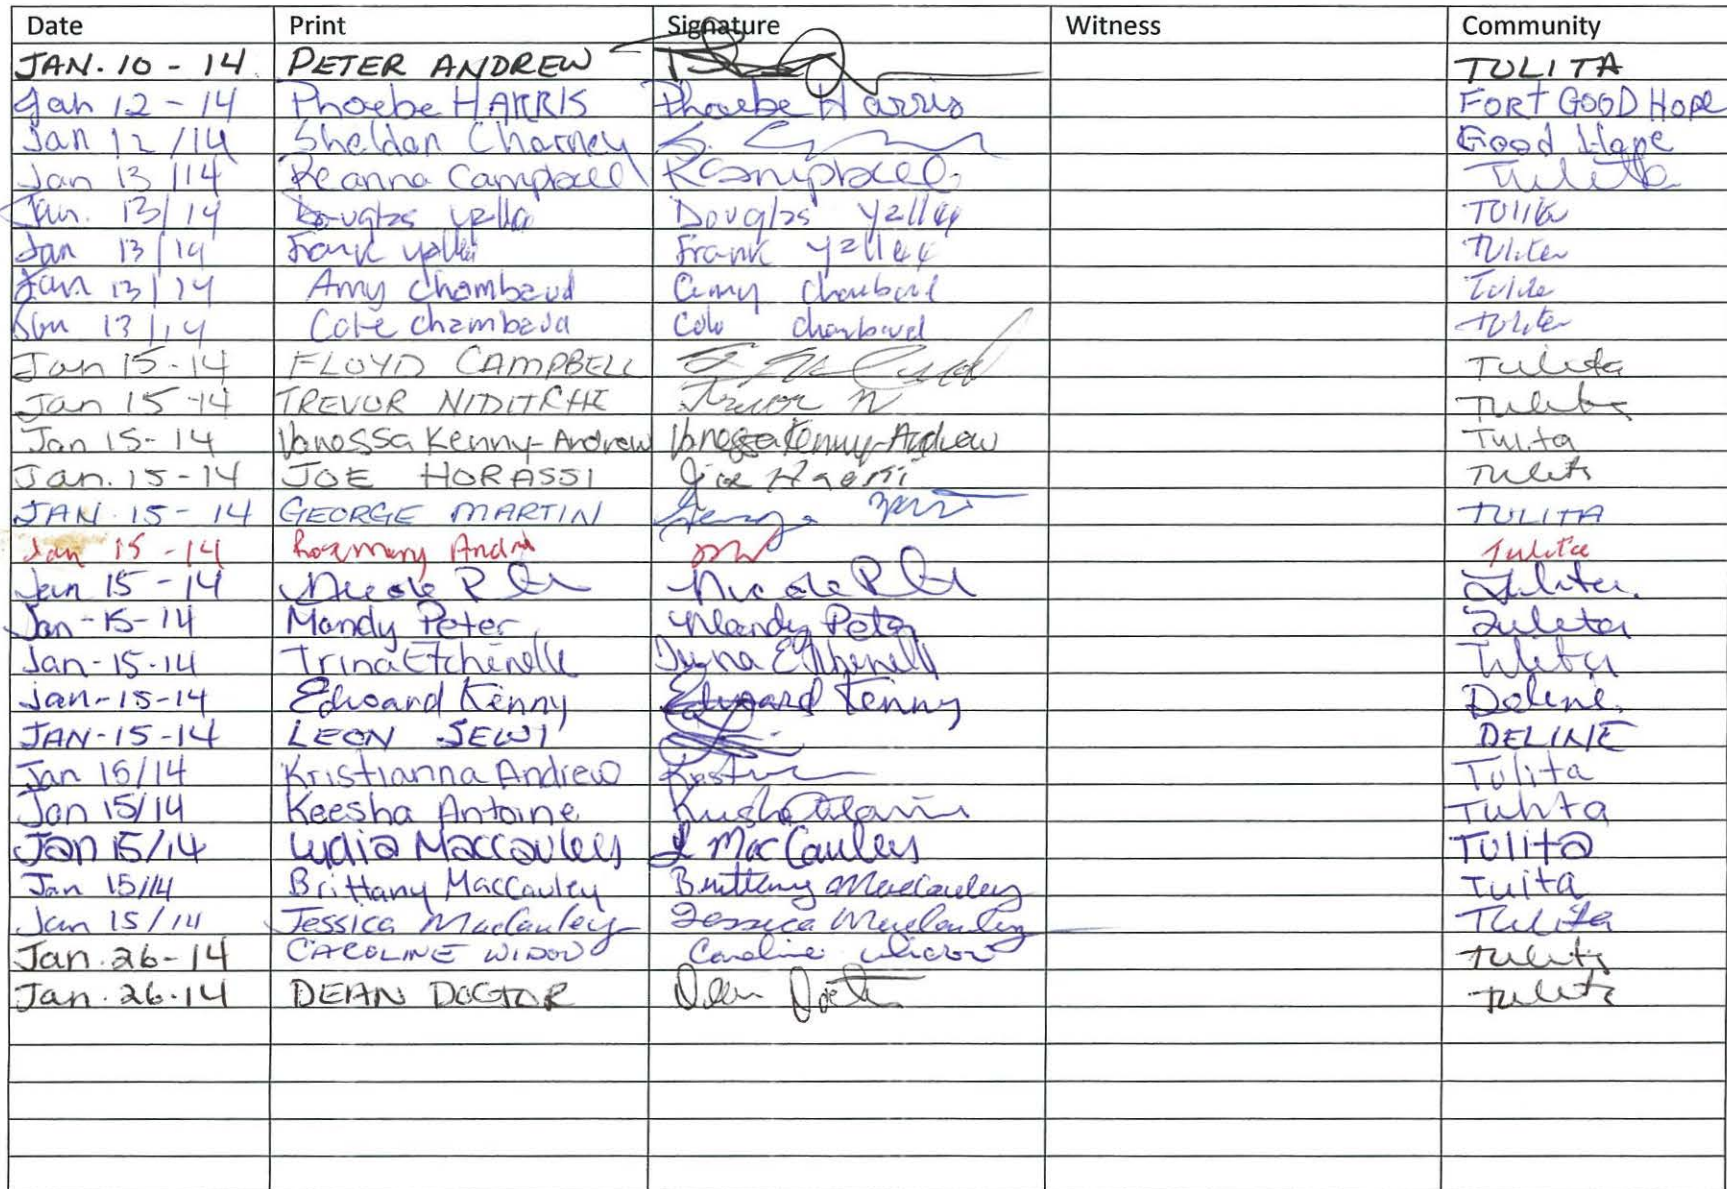 Date Print Signature Witness Community
JAN. 10 - 14 PETER ANDREW TULITA
Jan 12 - 14 Phoebe HARRIS Phoebe Harris FORT GOOD HOPE
Jan 12 /14 Sheldon Charney S. Good Hope
Jan 13 /14 Reanna Campbell RCampbell Tulita
Jan. 13/14 Douglas Yallee Tulita
Jan 13/14 Frank Yallee Tulita
Jan 13/14 Amy Chambaud Amy Tulita
Jan 13/14 Cole Chambaud Cole Tulita
Jan 15-14 FLOYD CAMPBELL Tulita
Jan 15-14 TREVOR NIDITCHE Trevor N Tulita
Jan 15-14 Vanessa Kenny-Andrew Vanessa Kenny-Andrew Tulita
Jan. 15-14 JOE HORASSI Joe Tulita
JAN. 15-14 GEORGE MARTIN George TULITA
Jan 15-14 Rosemary Tulita
Jan 15-14 Nicole Nicole Tulita
Jan-15-14 Mandy Peter Mandy Peter Tulita
Jan-15-14 Trina Etchinelle Trina Etchinelle Tulita
Jan-15-14 Edward Kenny Edward Kenny Deline
JAN-15-14 LEON SEWI DELINE
Jan 15/14 Kristianna Andrew Tulita
Jan 15/14 Keesha Antoine Tulita
Jan 15/14 Lydia Maccauley L MacCauley Tulita
Jan 15/14 Brittany MacCauley Brittany MacCauley Tuita
Jan 15/14 Jessica MacCauley Jessica MacCauley Tulita
Jan. 26-14 CAROLINE WIDOW Caroline Widow Tulita
Jan. 26.14 DEAN DOCTOR Dean Doctor Tulita